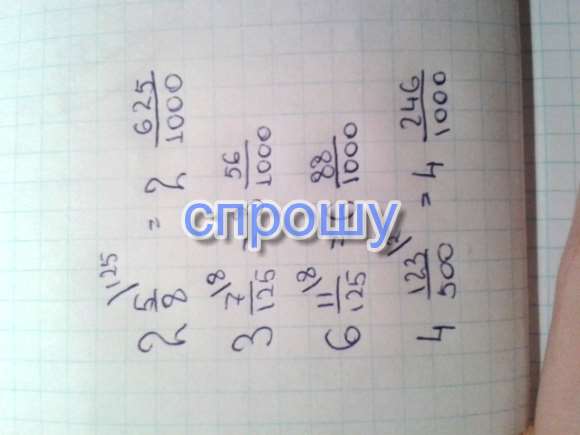 2 5/8 \125 = 2 625/1000
3 7/125 \8 = 56/1000
6 11/125 \8 = 88/1000
4 123/500 \2 = 4 246/1000
спрошу